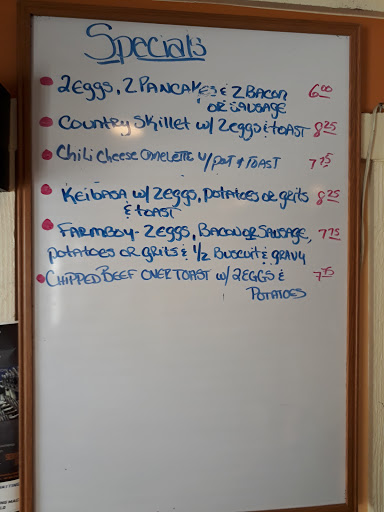 Specials
2 Eggs, 2 Pancakes & 2 Bacon 6.00
or Sausage
Country Skillet w/ 2 eggs & toast 8.25
Chili Cheese Omelette w/ Pot & Toast 7.75
Keibasa w/ 2 eggs, potatoes or grits 8.25
& toast
Farmboy - 2 eggs, Bacon or Sausage, 7.75
potatoes or grits & 1/2 Buscuit & gravy
Chipped Beef over Toast w/ 2 eggs & 7.75
Potatoes